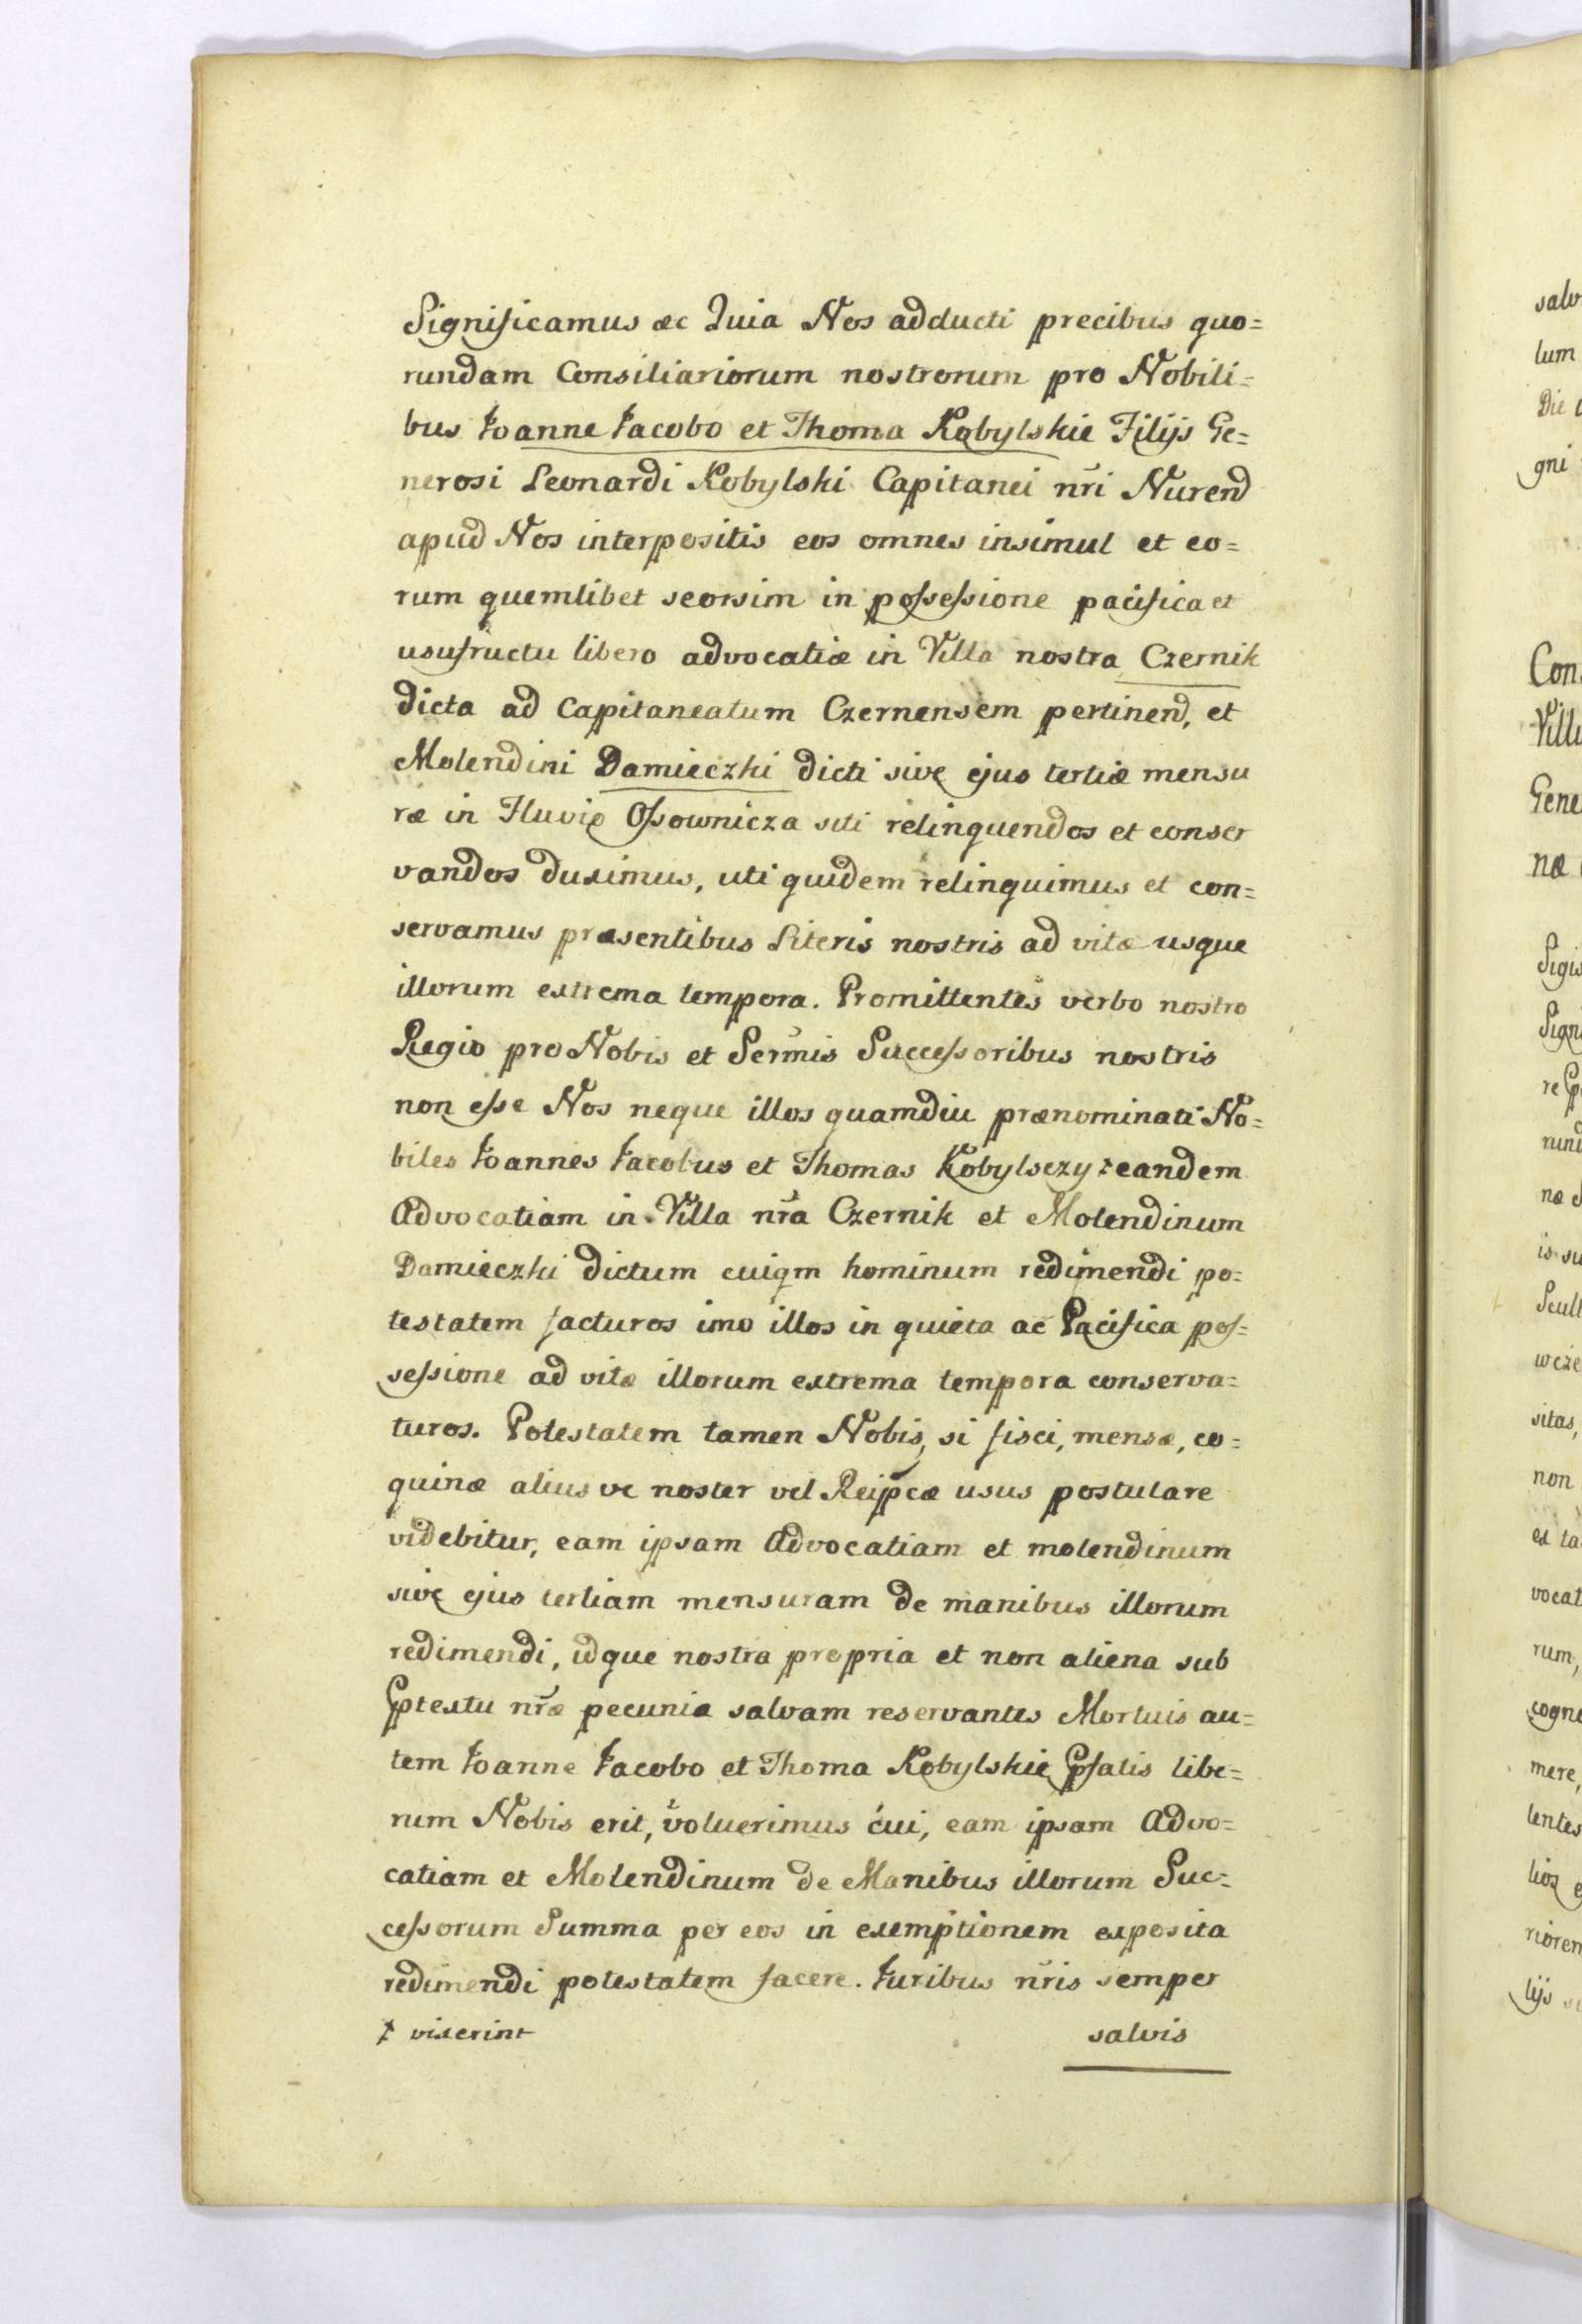 Significamus ac Quia Nos adducti precibus quo=
rundam Consiliariorum nostrorum pro Nobili=
bus Ioanne Iacobo et Thoma Kobylskie Filijs Ge=
nerosi Leonardi Kobylski Capitanei nr̃i Nurend
apud Nos interpositis eos omnes insimul et eo=
rum quemlibet seorsim in possessione pacifica et
usufructu libero advocatiæ in Villa nostra Czernik
dicta ad Capitaneatum Czernensem pertinend, et
Molendini Damieczki dicti sive ejus tertiæ mensu
ræ in Fluvio Ossownicza siti relinquendos et conser
vandos duximus, uti quidem relinquimus et con=
servamus præsentibus Literis nostris ad vitæ usque
illorum extrema tempora. Promittentes verbo nostro
Regio pro Nobis et Serm̃is Successoribus nostris
non esse Nos neque illos quamdiu prænominati No=
biles Ioannes Iacobus et Thomas Kobylsczy ‡ eandem
Advocatiam in Villa nr̃a Czernik et Molendinum
Damieczki dictum cuiqm hominum redimendi po=
testatem facturos imo illos in quieta ac Pacifica pos=
sessione ad vitæ illorum extrema tempora conserva=
turos. Potestatem tamen Nobis, si fisci, mensæ, co=
quinæ alius ve noster vel Reipcæ usus postulare
videbitur, eam ipsam Advocatiam et molendinum
sive ejus tertiam mensuram de manibus illorum
redimendi, idque nostra propria et non aliena sub
ptextu nr̃æ pecunia salvam reservantes Mortuis au=
tem Ioanne Iacobo et Thoma Kobylskie pfatis libe=
rum Nobis erit, voluerimus cui, eam ipsam Advo=
catiam et Molendinum de Manibus illorum Suc=
cessorum Summa per eos in exemptionem exposita
redimendi potestatem facere. Iuribus nr̃is semper
‡ vixerint salvis
salv
lum
Die
gni
Con
Vill
Gene
næ
Sigis
Sign
rund
is su
Scult
wcze
sitas,
non
ex ta
vocat
rum,
cogno
mere,
lentes
rioren
lijs